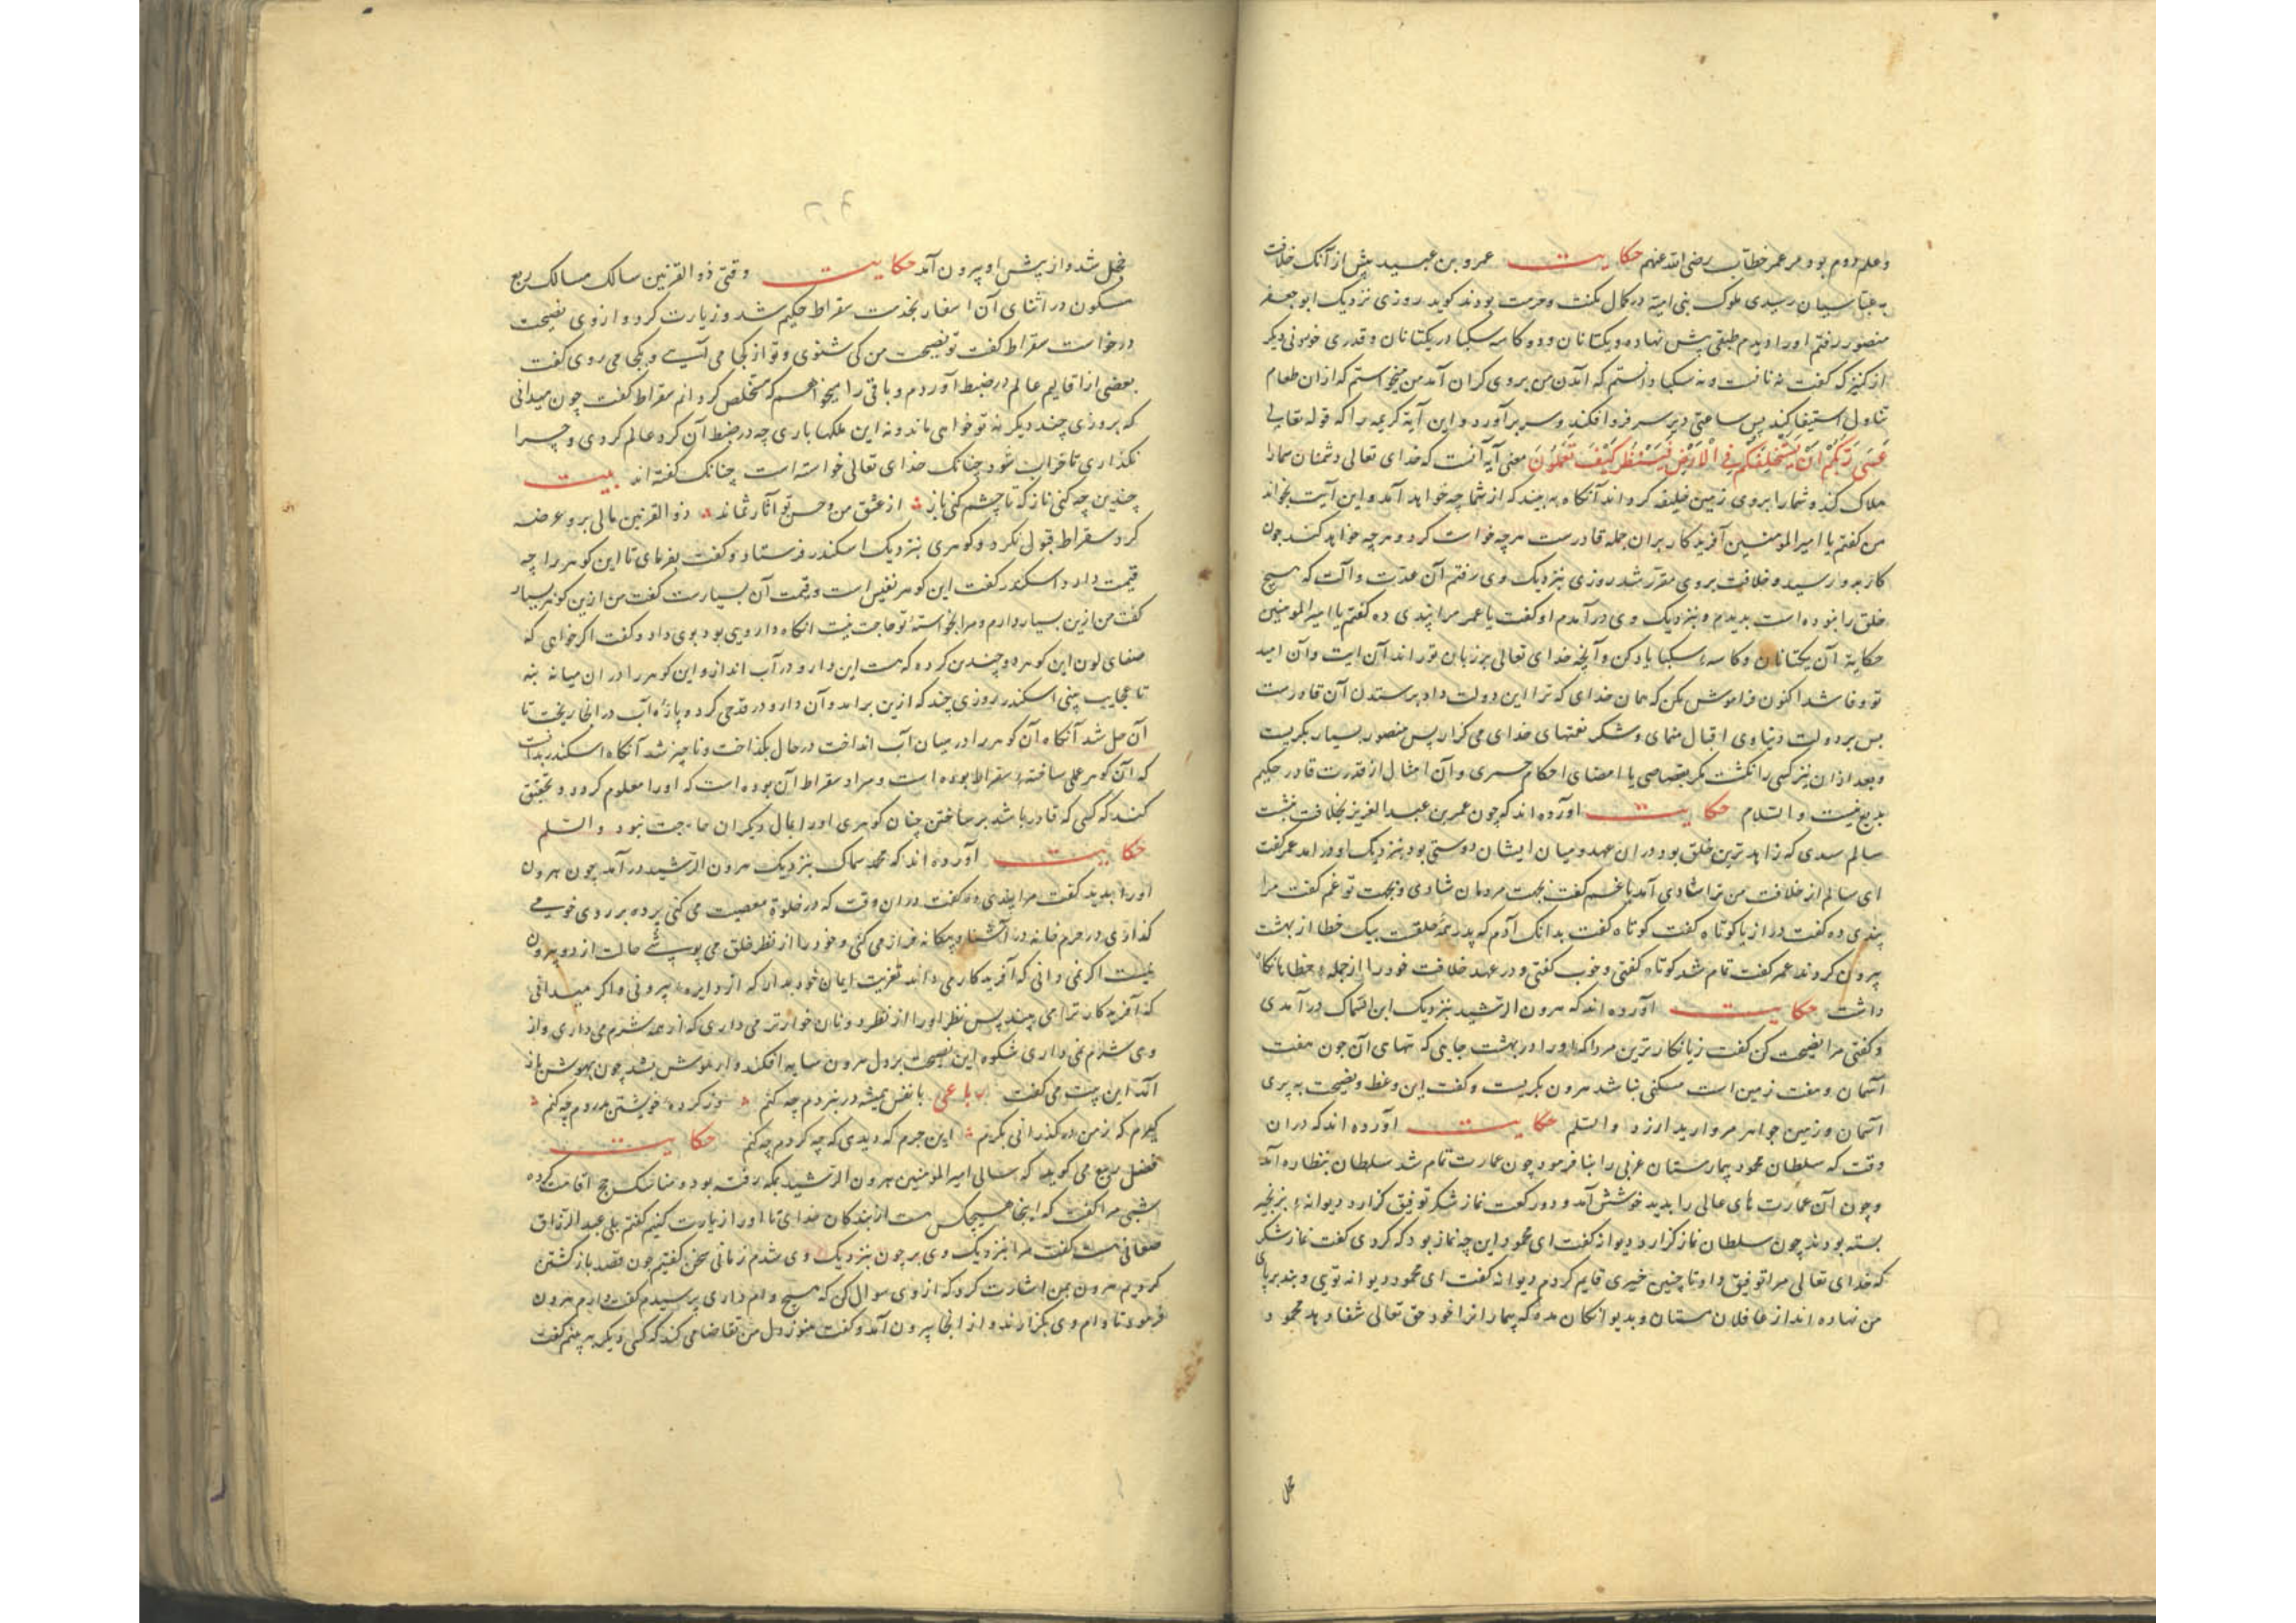 و علم دوم بود مر عمر خطاب رضی الله عنهم حکایت عمرو بن عبید پیش از آنک خلافت
به عباسیان رسیدی ملوک بنی امیه در کمال مکنت و حرمت بودند کوید روزی نزدیک ابو جعفر
منصور رفتم او را دیدم طبقی پیش نهاده و یکتا نان و دو کاسه سکبا در یکتا نان و قدری خوردنی دیکر
از کنیزک کفت نه نانست و نه سکبا دانستم که آمدن من بر وی کران آمد من میخواستم که از ان طعام
تناول استیفا کند پس ساعتی دیر سر فرو افکند و سر برآورد و این آیة کریمه را که قوله تعالی
عَسَى رَبُّكُمْ اَنْ يَسْتَخْلِفَكُمْ فِي الْاَرْضِ فَيَنْظُرَ كَيْفَ تَعْمَلُونَ معنی آیه آنست که خدای تعالی دشمنان شما را
هلاک کند و شما را بروی زمین خلیفه کرداند آنکاه به بیند که از شما چه خواهد آمد و این آیت بخواند
من کفتم یا امیر المومنین آفریدکار بران جمله قادرست هرچه خواست کرد و هرچه خواهد کند چون
کار بدو رسید و خلافت بر وی مقرر شد روزی بنزدیک وی رفتم آن عدت و آلت که هیچ
خلق را نبوده است بدیدم و بنزدیک وی درآمدم او کفت یا عمر مرا پندی ده کفتم یا امیر المومنین
حکایة آن یکتا نان و کاسه سکبا یاد کن و آنچه خدای تعالی بر زبان تو راند آن آیت و آن امید
تو وفا شد اکنون فراموش مکن که همان خدای که ترا این دولت داد بر ستدن آن قادرست
پس بر دولت دنیاوی اقبال منمای و شکر نعمتهای خدای می کزار پس منصور بسیار بکریست
و بعد ازان نیز کسی را نکشت مکر بقصاص یا امضای احکام و آن امثال از قدرت قادر حکیم
بدیع نیست والسلام حکایت آورده اند که چون عمر بن عبد العزیز بخلافت نشست
سالم سدی که زاهد ترین خلق بود دران عهد و میان ایشان دوستی بود بنزدیک او درامد عمر کفت
ای سالم از خلافت من ترا شادی آمد یا غم کفت بجهت مردمان شادی و بجهت تو غم کفت مرا
پندی ده کفت دراز یا کوتاه کفت کوتاه کفت بدانک آدم که پدر همه خلقت بیک خطا از بهشت
بیرون کردند عمر کفت تمام شد کوتاه کفتی و خوب کفتی و در عهد خلافت خود را از جمله خطاها نکاه
داشت حکایت آورده اند که هرون الرشید بنزدیک ابن السماک درآمدی
و کفتی مرا نصیحت کن کفت زیانکار ترین مردا که او را در بهشت جایی که تنهای آن چون هفت
آسمان و هفت زمین است مسکنی نباشد هرون بکریست و کفت این وعظ و نصیحت به پری
آسمان و زمین جواهر مروارید ارزد والسلم حکایت آورده اند که دران
وقت که سلطان محمود بیمارستان غزنی را بنا فرمود چون عمارت تمام شد سلطان بنظاره آمد
و چون آن عمارت های عالی را بدید خوشش آمد و دو رکعت نماز شکر توفیق کزارد دیوانه بزنجیر
بسته بودند چون سلطان نماز کزارد دیوانه کفت ای محمود این چه نماز بود که کردی کفت نماز شکر
که خدای تعالی مرا توفیق داد تا چنین خیری قایم کردم دیوانه کفت ای محمود دیوانه تویی و بند بر پای
من نهاده اند از عاقلان مستان و بدیوانکان مده که بیمارانرا خود حق تعالی شفا دهد محمود
خجل
خجل شد و از پیش او بیرون آمد حکایت وقتی ذو القرنین سالک مسالک ربع
مسکون در اثنای آن اسفار بخدمت سقراط حکیم شد و زیارت کرد و از وی نصیحت
درخواست سقراط کفت تو نصیحت من کی شنوی و تو از کجا می آیی و بکجا می روی کفت
بعضی از اقالیم عالم در ضبط آوردم و باقی را میخواهم که مستخلص کردانم سقراط کفت چون میدانی
که بروزی چند دیکر نه تو خواهی ماند و نه این ملکها باری چه در ضبط آن کرد عالم کردی و چرا
نکذاری تا خراب شود چنانک خدای تعالی خواسته است چنانک کفته اند بیت
چندین چه کنی ناز که تا چشم کنی باز از عشق من و حسن تو آثار نماند ذو القرنین مالی برو عرضه
کرد سقراط قبول نکرد و کوهری بنزدیک اسکندر فرستاد و کفت بفرمای تا این کوهر را چه
قیمت دارد اسکندر کفت این کوهر نفیس است و قیمت آن بسیارست کفت من ازین کوهر بسیار
کفت من ازین بسیار دارم و مرا بخواسته تو حاجت نیست انکاه دارویی بود بوی داد و کفت اکر خواهی که
صفای لون این کوهر دو چندین کردد که هست این دارو در آب انداز و این کوهر را دران میانه بنه
تا عجایب بینی اسکندر روزی چند که ازین برامد و آن دارو در قدحی کرد و پاره آب درانجا ریخت تا
آن حل شد آنکاه آن کوهر را در میان آب انداخت در حال بکداخت و ناچیز شد آنکاه اسکندر بدانست
که آن کوهر عملی ساخته سقراط بوده است و مراد سقراط آن بوده است که او را معلوم کردد و تحقیق
کند که کسی که قادر باشد بر ساختن چنان کوهری او را بمال دیکران حاجت نبود والسلم
حکایت آورده اند که محمد سماک بنزدیک هرون الرشید درآمد چون هرون
او را بدید کفت مرا پندی ده کفت دران وقت که در خلوة معصیت می کنی پرده بر روی خود می
کذاری در حرم خانه در آشنا و بیکانه فراز می کنی و خود را از نظر خلق می پوشی حالت از دو بیرون
نیست اکر نمی دانی که آفریدکار می داند تعزیت ایمان خود بدار که از دایره بیرونی و اکر میدانی
که آفریدکار ترا می بیند پس نظر او را از نظر دونان خوارتر می داری که از همه شرم می داری و از
وی شرم نمی داری شکوه این نصیحت بر دل هرون سایه افکند و از هوش بشد چون بهوش باز
آمد این بیت می کفت رباعی با نفس همیشه در نبردم چه کنم وز کرده خویشتن بدردم چه کنم
کیرم که ز من در کذرانی بکرم این جرم که دیدی که چه کردم چه کنم حکایت
فضل ربیع می کوید که سالی امیر المومنین هرون الرشید بمکه رفته بود و مناسک حج اقامت کرده
شبی مرا کفت که اینجا هیچکس هست از بندکان خدای تا او را زیارت کنیم کفتم بلی عبد الرزاق
صنعانی هست کفت مرا بنزدیک وی بر چون بنزدیک وی شدم زمانی سخن کفتیم چون قصد بازکشتن
کردیم هرون بمن اشارت کرد که از وی سوال کن که هیچ وام داری پرسیدم کفت دارم هرون
فرمود تا وام وی بکزارند و از انجا بیرون آمد و کفت هنوز دل من تقاضا می کند که کسی دیکر به بینم کفت